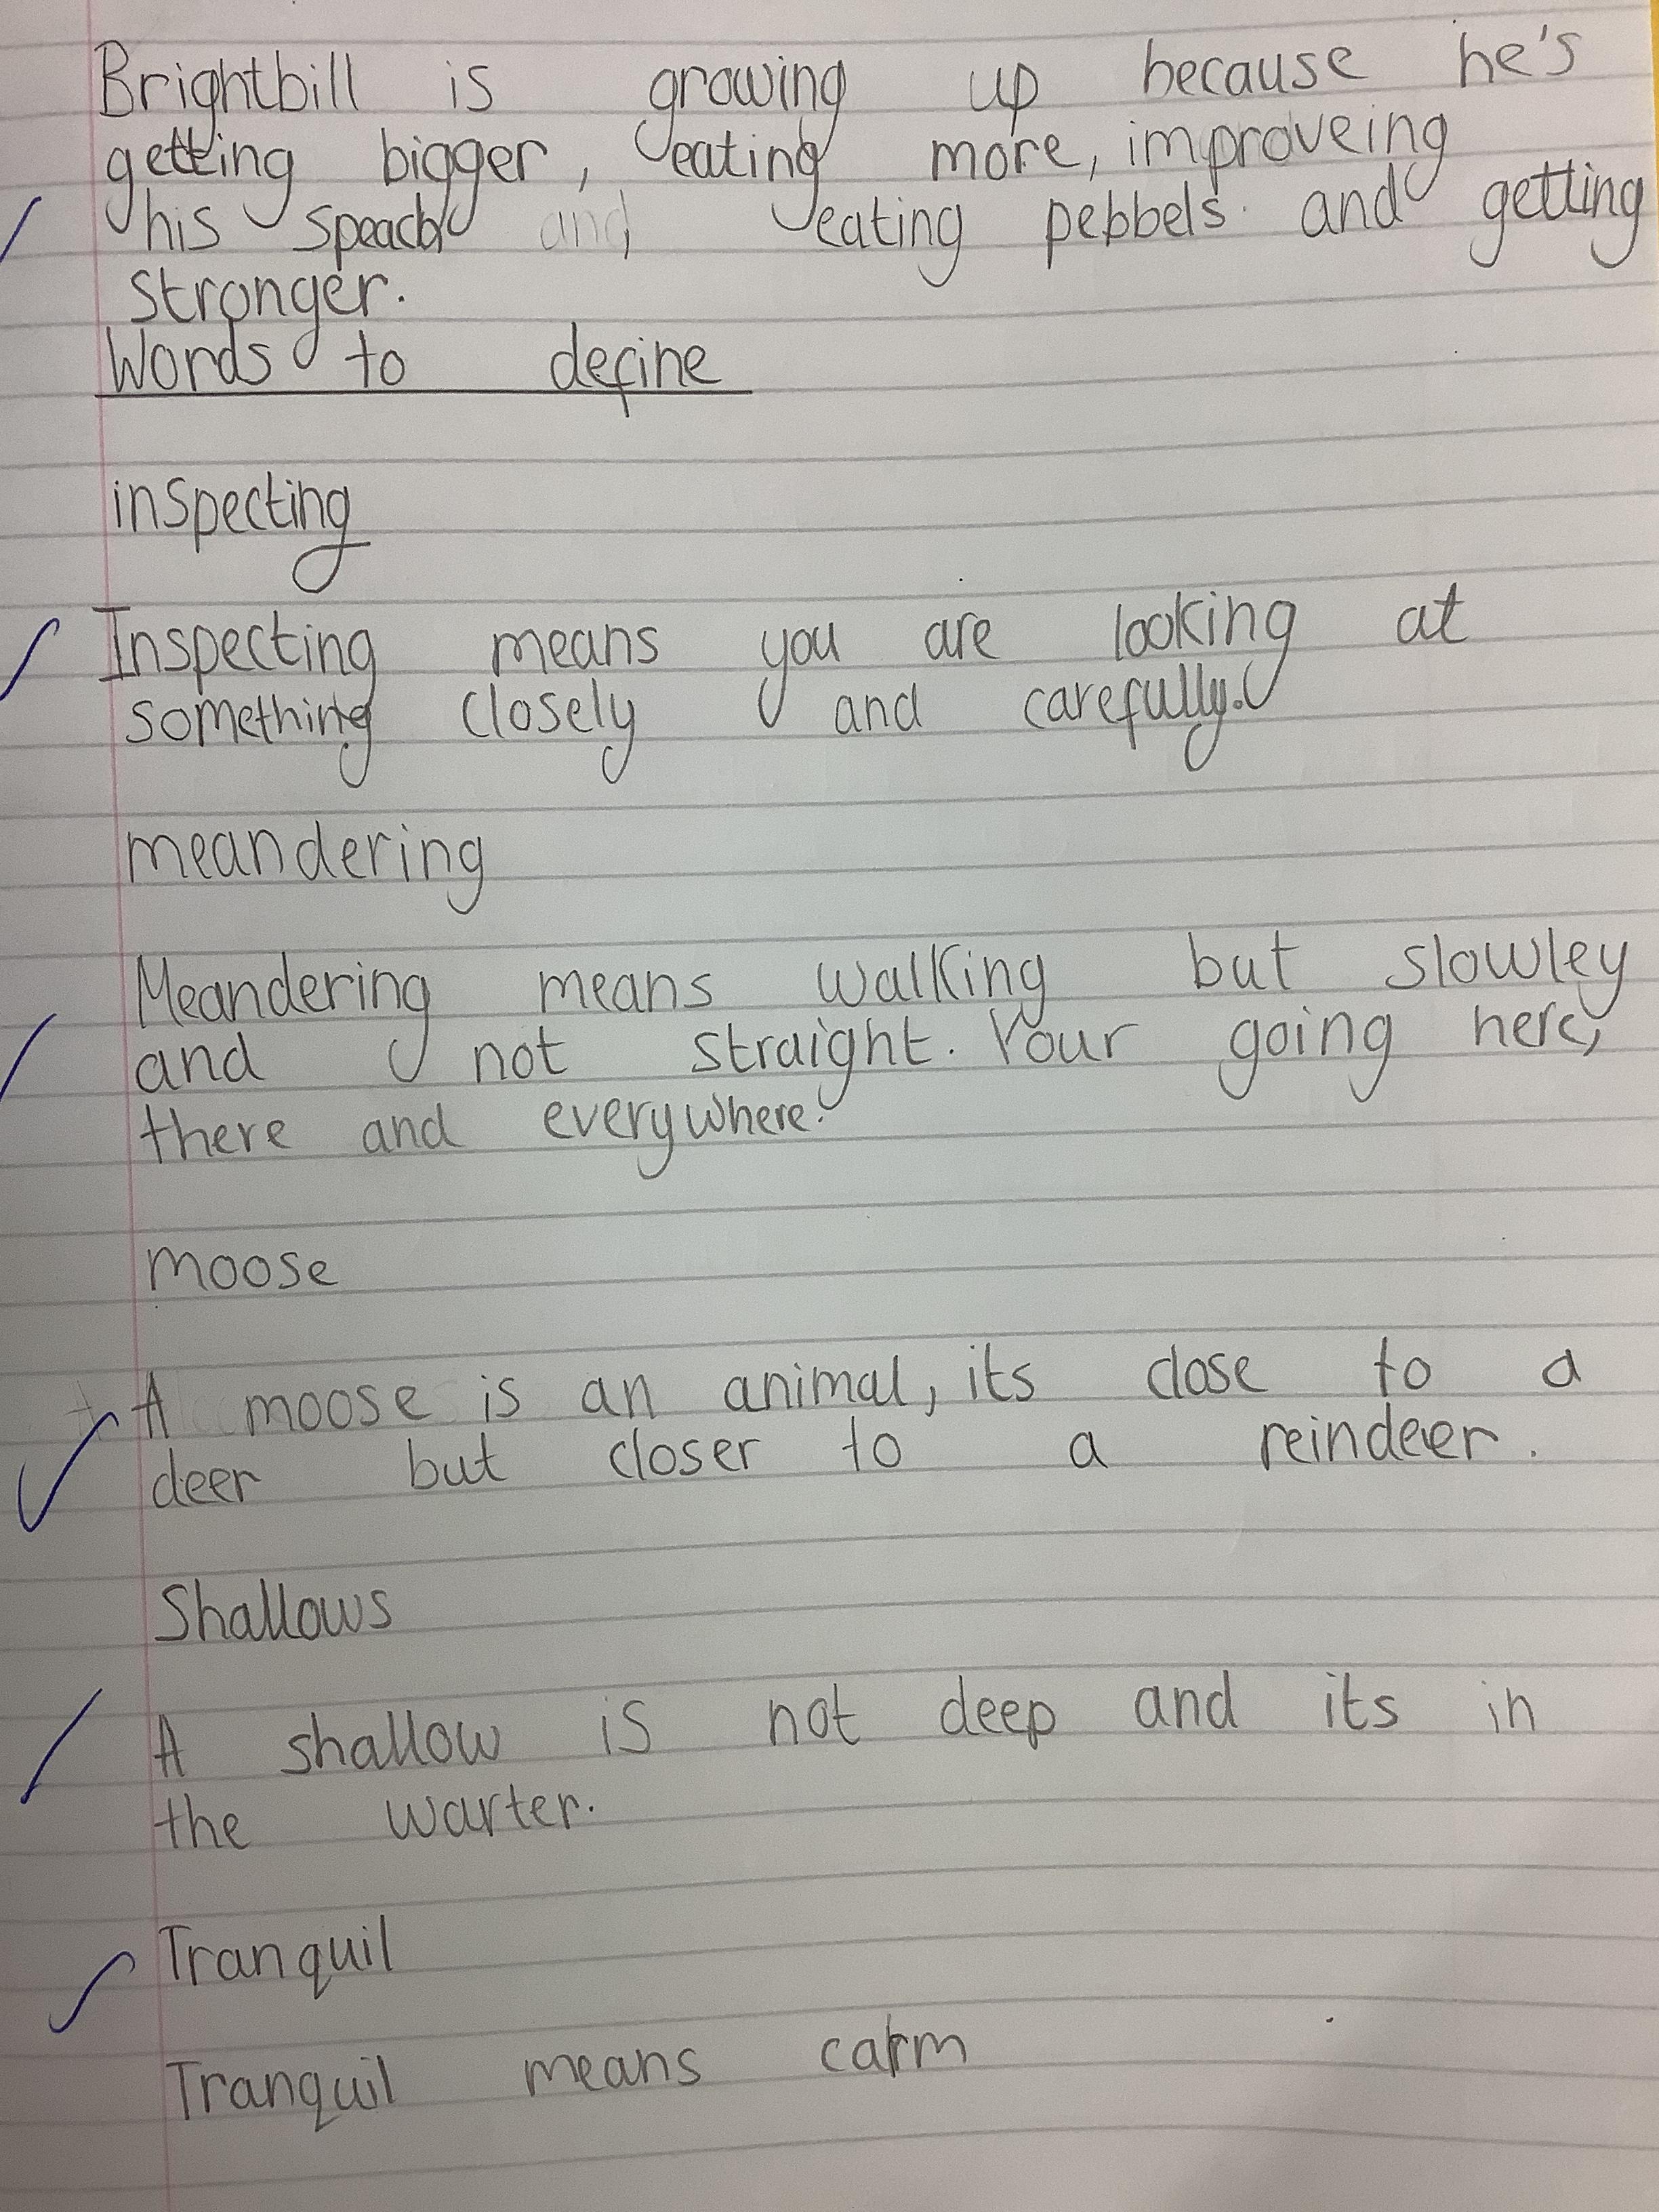 Brightbill is growing up because he's
getting bigger, eating more, improveing
his speach and, eating pebbels and getting
stronger.
Words to define
inspecting
Inspecting means you are looking at
something closely and carefully.
meandering
Meandering means walking but slowley
and not straight. Your going here,
there and everywhere.
moose
A moose is an animal, its close to a
deer but closer to a reindeer.
Shallows
A shallow is not deep and its in
the warter.
Tranquil
Tranquil means